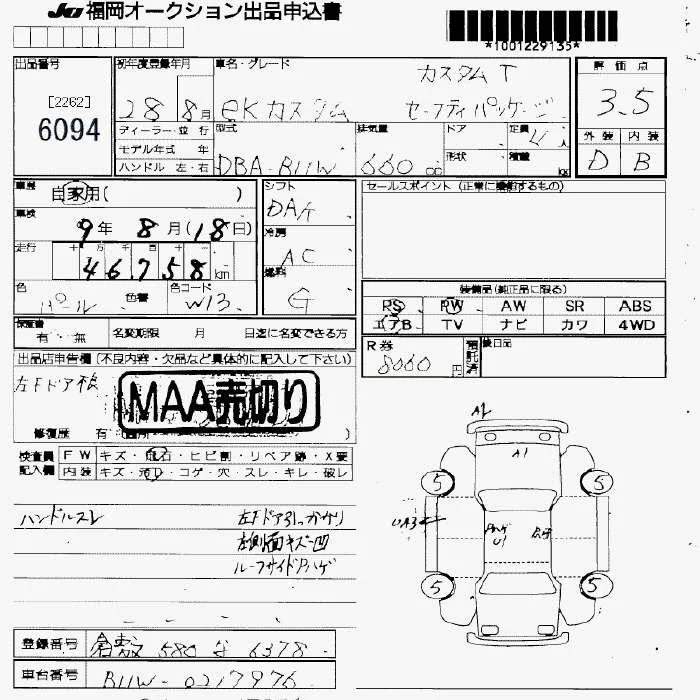 JU 福岡オークション出品申込書
*1001229135*
出品番号
[2262]
6094
初年度登録年月
28 8月
車名・グレード
eKカスタム カスタムT
セーフティパッケージ
評価点
3.5
外装 内装
D B
ディーラー・並 行
モデル年式 年
ハンドル 左・右
型式
DBA-B11W
排気量
660 cc
ドア
形状
定員 4人
積載 kg
車歴
自家用( )
車検
9年 8月(18日)
走行
十 万 千 百 十
46758 km
色
パール
色替
色コード
W13
シフト
DAT
冷房
AC
燃料
G
セールスポイント (正常に機能するもの)
装備品(純正品に限る)
PS PW AW SR ABS
エアB TV ナビ カワ 4WD
保証書
有・無
名変期限 月 日迄に名変できる方
R券
8060円
預託済
後日品
出品店申告欄 (不良内容・欠品など具体的に記入して下さい)
左Fドア
MAA売切り
修復歴 有
検査員 FW キズ・飛石・ヒビ割・リペア跡・X要
記入欄 内装 キズ・汚れ・コゲ・穴・スレ・キレ・破レ
ハンドルスレ 左Fドア引っかかり
左側面キズ凹
ルーフサイドPハゲ
A1
5 5
U1
5 5
登録番号 倉敷 580 な 6378
車台番号 B11W-0217976